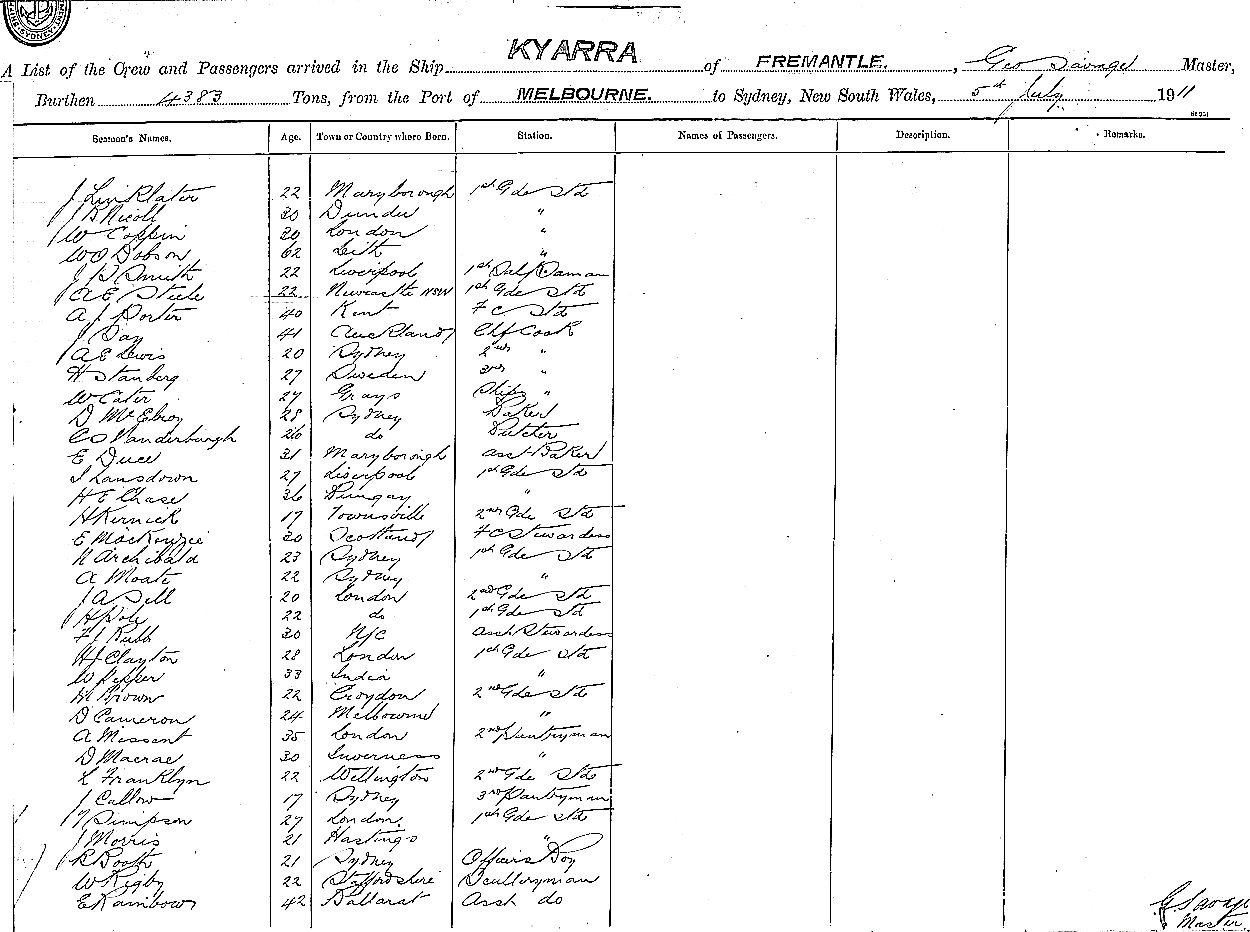 SYDNEY
KYARRA
A List of the Crew and Passengers arrived in the Ship KYARRA of FREMANTLE. , Geo Savage Master,
Burthen 4383 Tons, from the Port of MELBOURNE. to Sydney, New South Wales, 5th July 1911
Seamen's Names. Age. Town or Country where Born. Station. Names of Passengers. Description. Remarks.
J Linklater 22 Maryborough 1st Gde Std
J B Nicoll 30 Dundee "
W Coppin 30 London "
W O Dobson 62 Leith "
J H Smith 22 Liverpool 1st Saloonman
A E Steele 22 Newcastle NSW 1st Gde Std
A J Porter 40 Kent F C Std
J Day 41 Auckland Chf Cook
A E Lewis 20 Sydney 2nd "
H Stanberg 27 Sweden 3rd "
W Cater 27 Grays Ships "
D McElroy 28 Sydney Baker
C O Vanderburgh 26 do Butcher
E Duce 31 Maryborough asst Baker
Lansdown 27 Liverpool 1st Gde Std
H E Chase 36 Bungay "
H Kernick 17 Townsville 2nd Gde Std
E MacKenzie 30 Scotland F C Stewardess
N Archibald 23 Sydney 1st Gde Std
A Moate 22 Sydney "
J A Sell 20 London 2nd Gde Std
H Pole 22 do 1st Gde Std
F J Rubb 30 N/c asst Stewardess
H J Clayton 28 London 1st Gde Std
W Pepper 33 India "
H Brown 22 Croydon 2nd Gde Std
D Cameron 24 Melbourne "
A Missent 35 London 2nd Pantryman
D Macrae 30 Inverness "
L Franklyn 22 Wellington 2nd Gde Std
J Callow 17 Sydney 3rd Pantryman
Simpson 27 London 1st Gde Std
J Morris 21 Hastings "
R Booth 21 Sydney Officers Boy
W Rigby 22 Staffordshire Sculleryman
E Rainbow 42 Ballarat Asst do
G Savage
Master